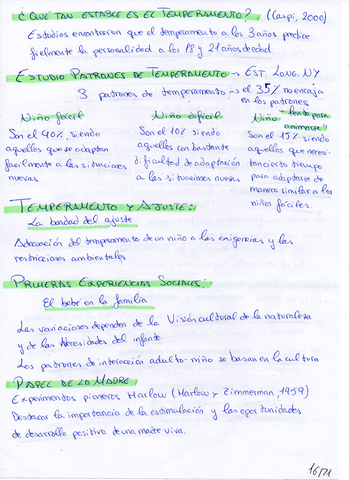 ¿QUÉ TAN ESTABLE ES EL TEMPERAMENTO? (Caspi, 2000)
Estudios encontraron que el temperamento a los 3 años predice
fielmente la personalidad a los 18 y 21 años de edad.
ESTUDIO PATRONES DE TEMPERAMENTO → EST. LONG. NY
3 patrones de temperamento → el 35% no encaja
en los patrones
Niño fácil
Son el 40%, siendo
aquellos que se adaptan
fácilmente a las situaciones
nuevas
Niño difícil
Son el 10% siendo
aquellos con bastante
dificultad de adaptación
a las situaciones nuevas
Niño "lento para
animarse"
Son el 15% siendo
aquellos que necesi-
tan cierto tiempo
para adaptarse de
manera similar a los
niños fáciles.
TEMPERAMENTO Y AJUSTE:
La bondad del ajuste
Adecuación del temperamento de un niño a las exigencias y las
restricciones ambientales
PRIMERAS EXPERIENCIAS SOCIALES:
El bebé en la familia
Las variaciones dependen de la Visión cultural de la naturaleza
y de las necesidades del infante
Los patrones de interacción adulto-niño se basan en la cultura
PAPEL DE LA MADRE
Experimentos pioneros Harlow (Harlow y Zimmerman, 1959)
Destacar la importancia de la estimulación y las oportunidades
de desarrollo positivo de una madre viva.